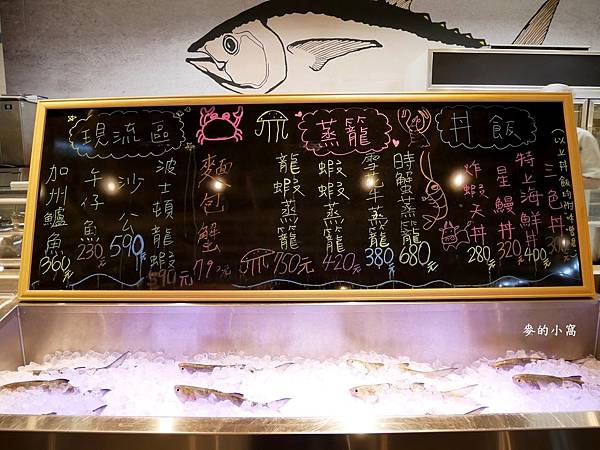 現流區
加州鱸魚
360元
午仔魚
230元
沙公
590元
波士頓龍蝦
590元
麵包蟹
蒸籠
龍蝦蒸籠
750元
蝦蝦蒸籠
420元
雪花牛蒸籠
380元
時蟹蒸籠
680元
丼飯
炸蝦天丼
280元
星鰻丼
320元
特上海鮮丼
400元
三色丼
麥的小窩